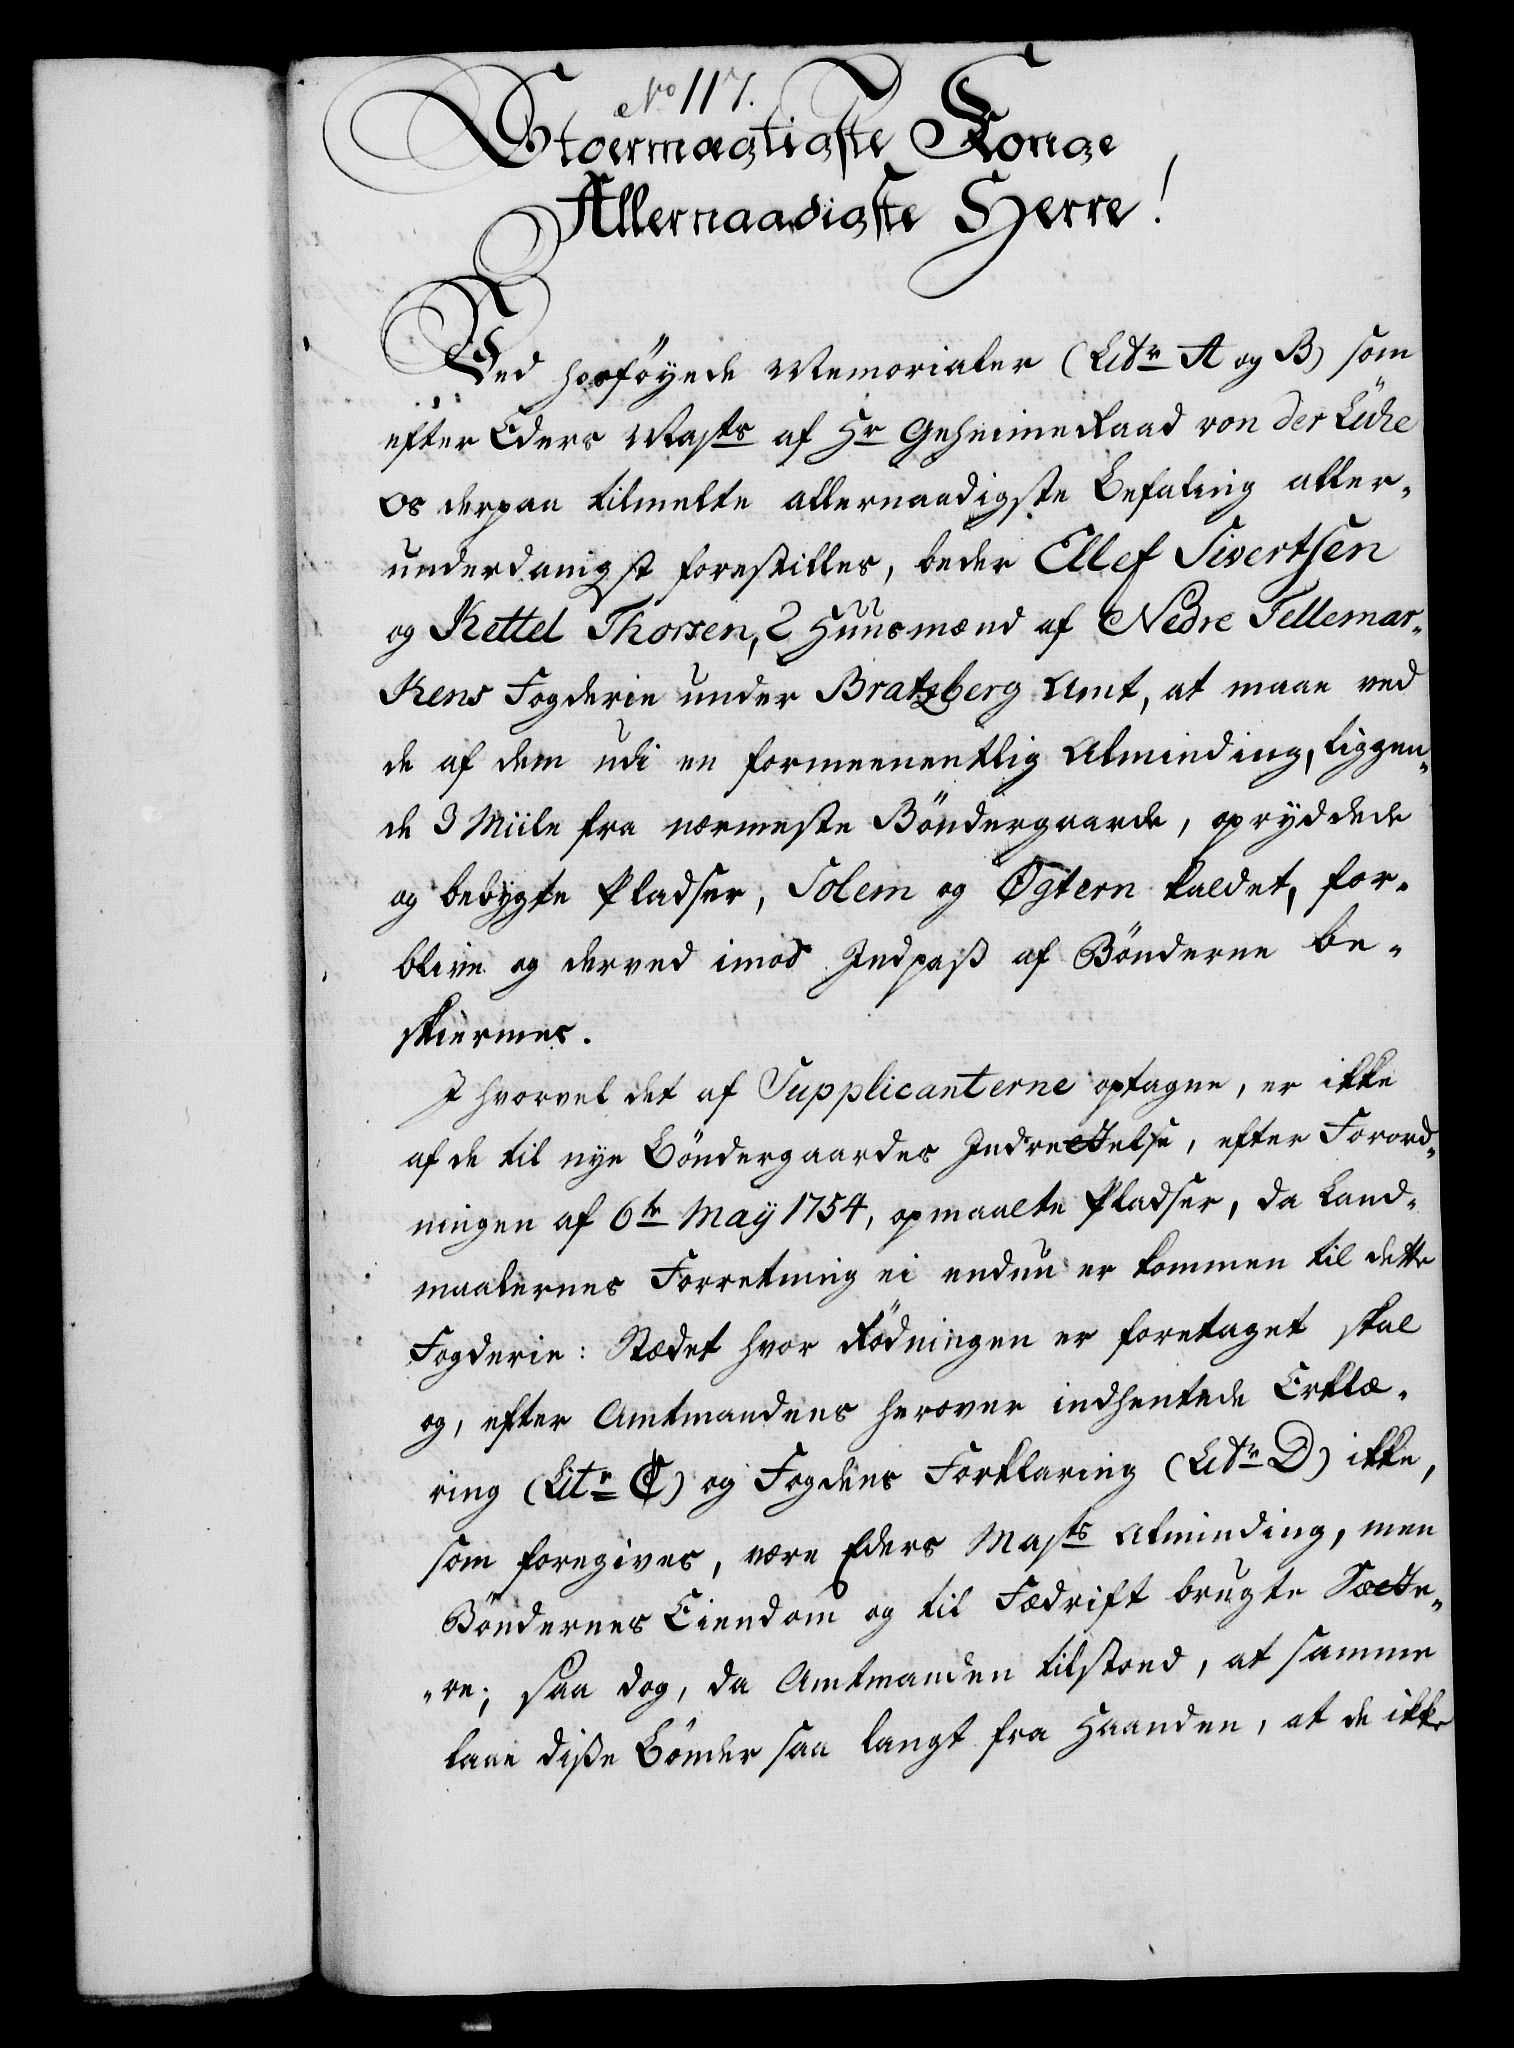 No 117.
Stoermægtigste Konge
Allernaadigste Herre!
Ved hosföyede Memorialer (Litr A og B) som
efter Eders Majts af Hr GeheimeRaad von der Lühe
os derpaa tilmelte allernaadigste Befaling aller-
underdanigst forestilles, beder Ellef Sivertsen
og Kettel Thorsen, 2 Huusmænd af Nedre Tellemar-
kens Fogderie under Bratsberg Amt, at maae ved
de af dem udi en formeenentlig Alminding, liggen-
de 3 Miile fra nærmeste Böndergaarde, opryddede
og bebygte Pladser, Solem og Øgtern kaldet, for-
blive og derved imod Indpass af Bönderne be-
skiermes.
I hvorvel det af Supplicanterne optagne, er ikke
af de til nye Böndergaardes Indrettelse, efter Forord-
ningen af 6te Maÿ 1754, opmaalte Pladser, da Land-
maalernes Forretning ei endnu er kommen til dette
Fogderie: Stædet hvor Rödningen er foretaget skal
og, efter Amtmandens herover indhentede Erklæ-
ring (Litr C) og Fogdens Forklaring (Litr D) ikke,
som foregives, være Eders Majts Alminding, men
Böndernes Eiendom og til Fædrift brugte Sætte-
-re; saa dog, da Amtmanden tilstoed, at samme
laae disse Bönder saa langt fra Haanden, at de ikke